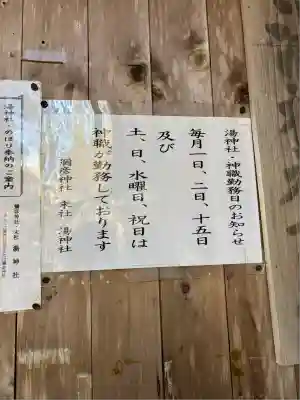 湯神社・神職勤務日のお知らせ
毎月一日、二日、十五日
及び
土、日、水曜日、祝日は
神職が勤務しております
彌彦神社 末社 湯神社
湯神社・のぼり奉納のご案内
彌彦神社・末社 湯神社